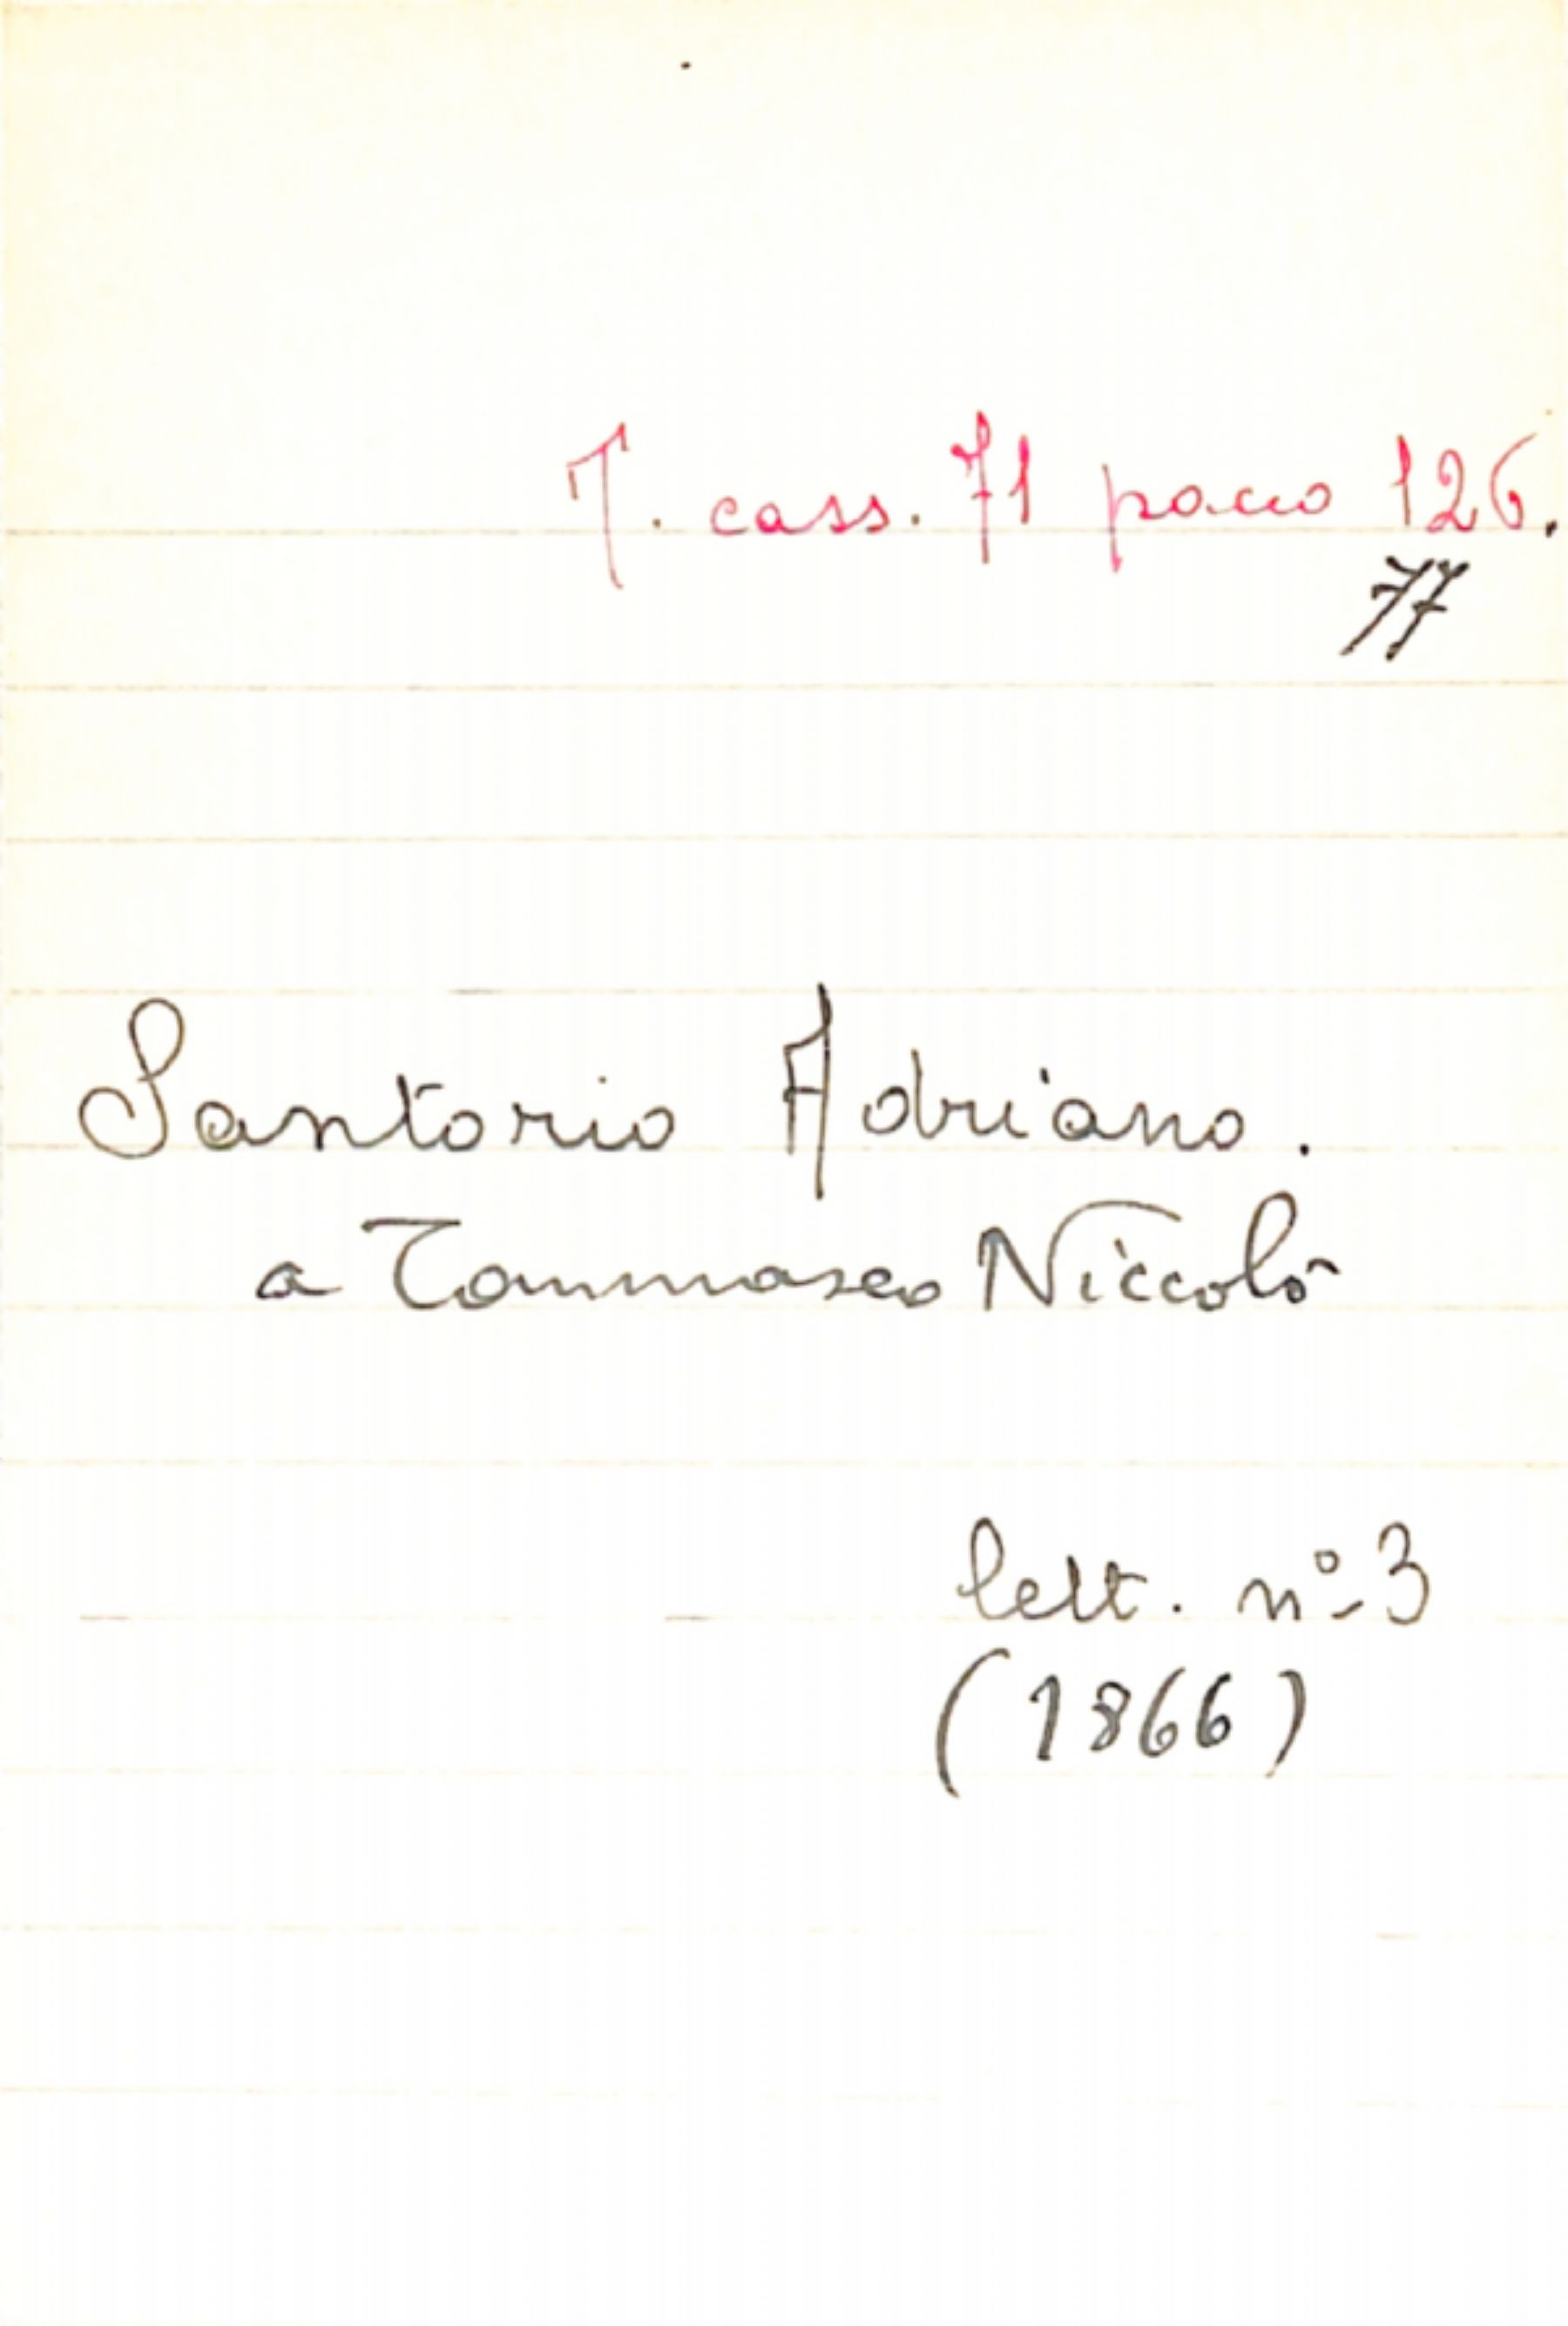 T. cass. 71 pacco 126.
77
Santorio Adriano.
a Tommaseo Niccolò
lett. nº 3
(1866)